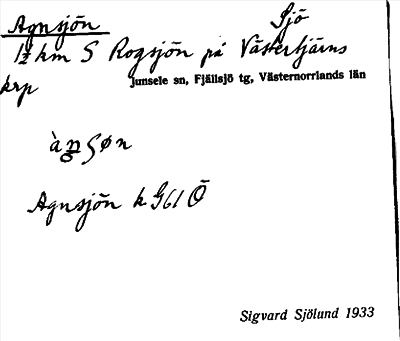 Agnsjön Sjö
1½ km S Rogsjön på Västertjärns
krp
Junsele sn, Fjällsjö tg, Västernorrlands län
Agnsjön k G61 Ö
Sigvard Sjölund 1933